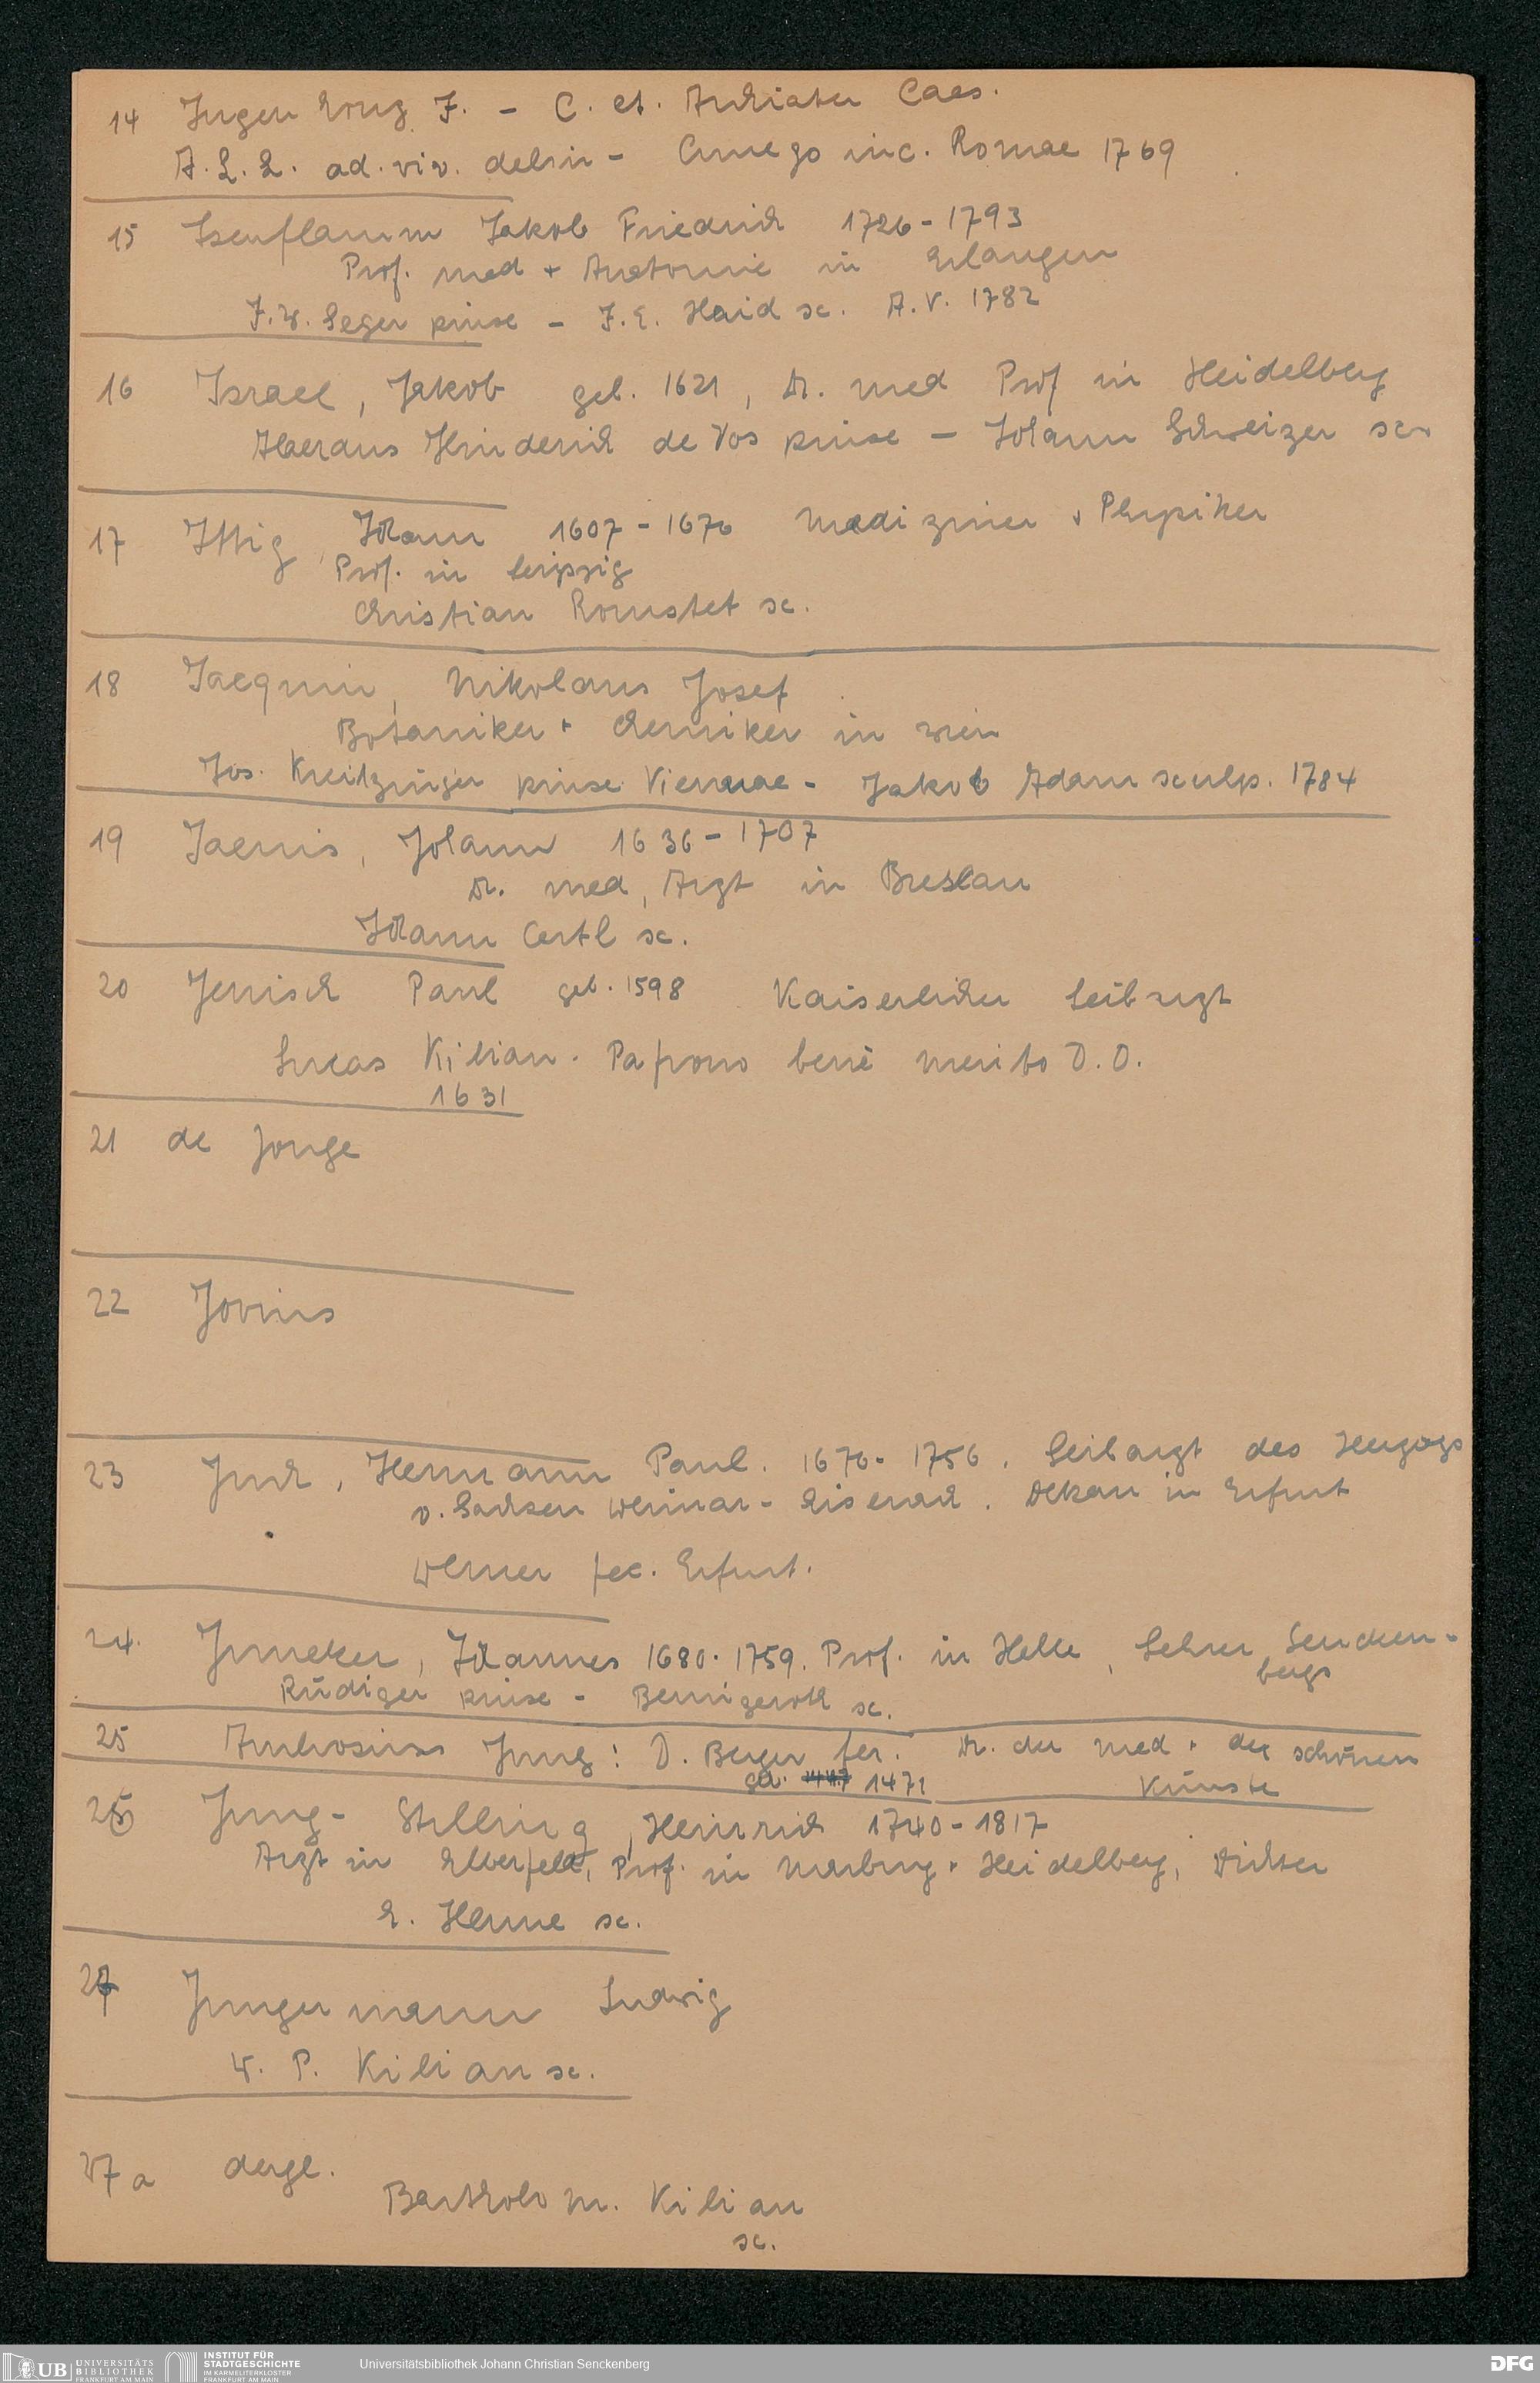 14 Ingen Housz J. - C. et. Archiater Caes.
A. L. L. ad. viv. delin - Cunego inc. Romae 1769
15 Isenflamm Jakob Friedrich 1726-1793
Prof. med + Anatomie in Erlangen
J. W. Seger pinse - J. E. Haid sc. A. V. 1782
16 Israel, Jakob geb. 1621, Dr. med Prof in Heidelberg
Hinderich de Vos pinse - Johann Schweizer sc.
17 Ittig, Johann 1607-1676 Mediziner + Physiker
Prof. in Leipzig
Christian Romstet sc.
18 Jacquin, Nikolaus Josef
Botaniker + Chemiker in Wien
Jos. Kreitzinger pinse Viennae - Jakob Adam sculp. 1784
19 Jaenis, Johann 1636-1707
Dr. med, Arzt in Breslau
Johann Certl sc.
20 Jenisch Paul geb. 1598 Kaiserlicher Leibarzt
Lucas Kilian. Patrono bene merito D. D.
1631
21 de Jonge
22 Jovius
23 Juch, Hermann Paul. 1676-1756. Leibarzt des Herzogs
v. Sachsen Weimar-Eisenach. Dekan in Erfurt
Werner fec. Erfurt.
24. Juncker, Johannes 1680-1759. Prof. in Halle, Lehrer Sencken-
bergs
Rüdiger pinse - Bernigeroth sc.
25 Ambrosius Jung: D. Berger fec. Dr. der med + der schönen
geb. 1471 Künste
26 Jung-Stilling, Heinrich 1740-1817
Arzt in Elberfeld, Prof. in Marburg + Heidelberg, Dichter
E. Henne sc.
27 Jungermann Ludwig
W. P. Kilian sc.
27a dergl.
Bartholom. Kilian
sc.
UB UNIVERSITÄTS
BIBLIOTHEK
FRANKFURT AM MAIN
INSTITUT FÜR
STADTGESCHICHTE
IM KARMELITERKLOSTER
FRANKFURT AM MAIN
Universitätsbibliothek Johann Christian Senckenberg
DFG